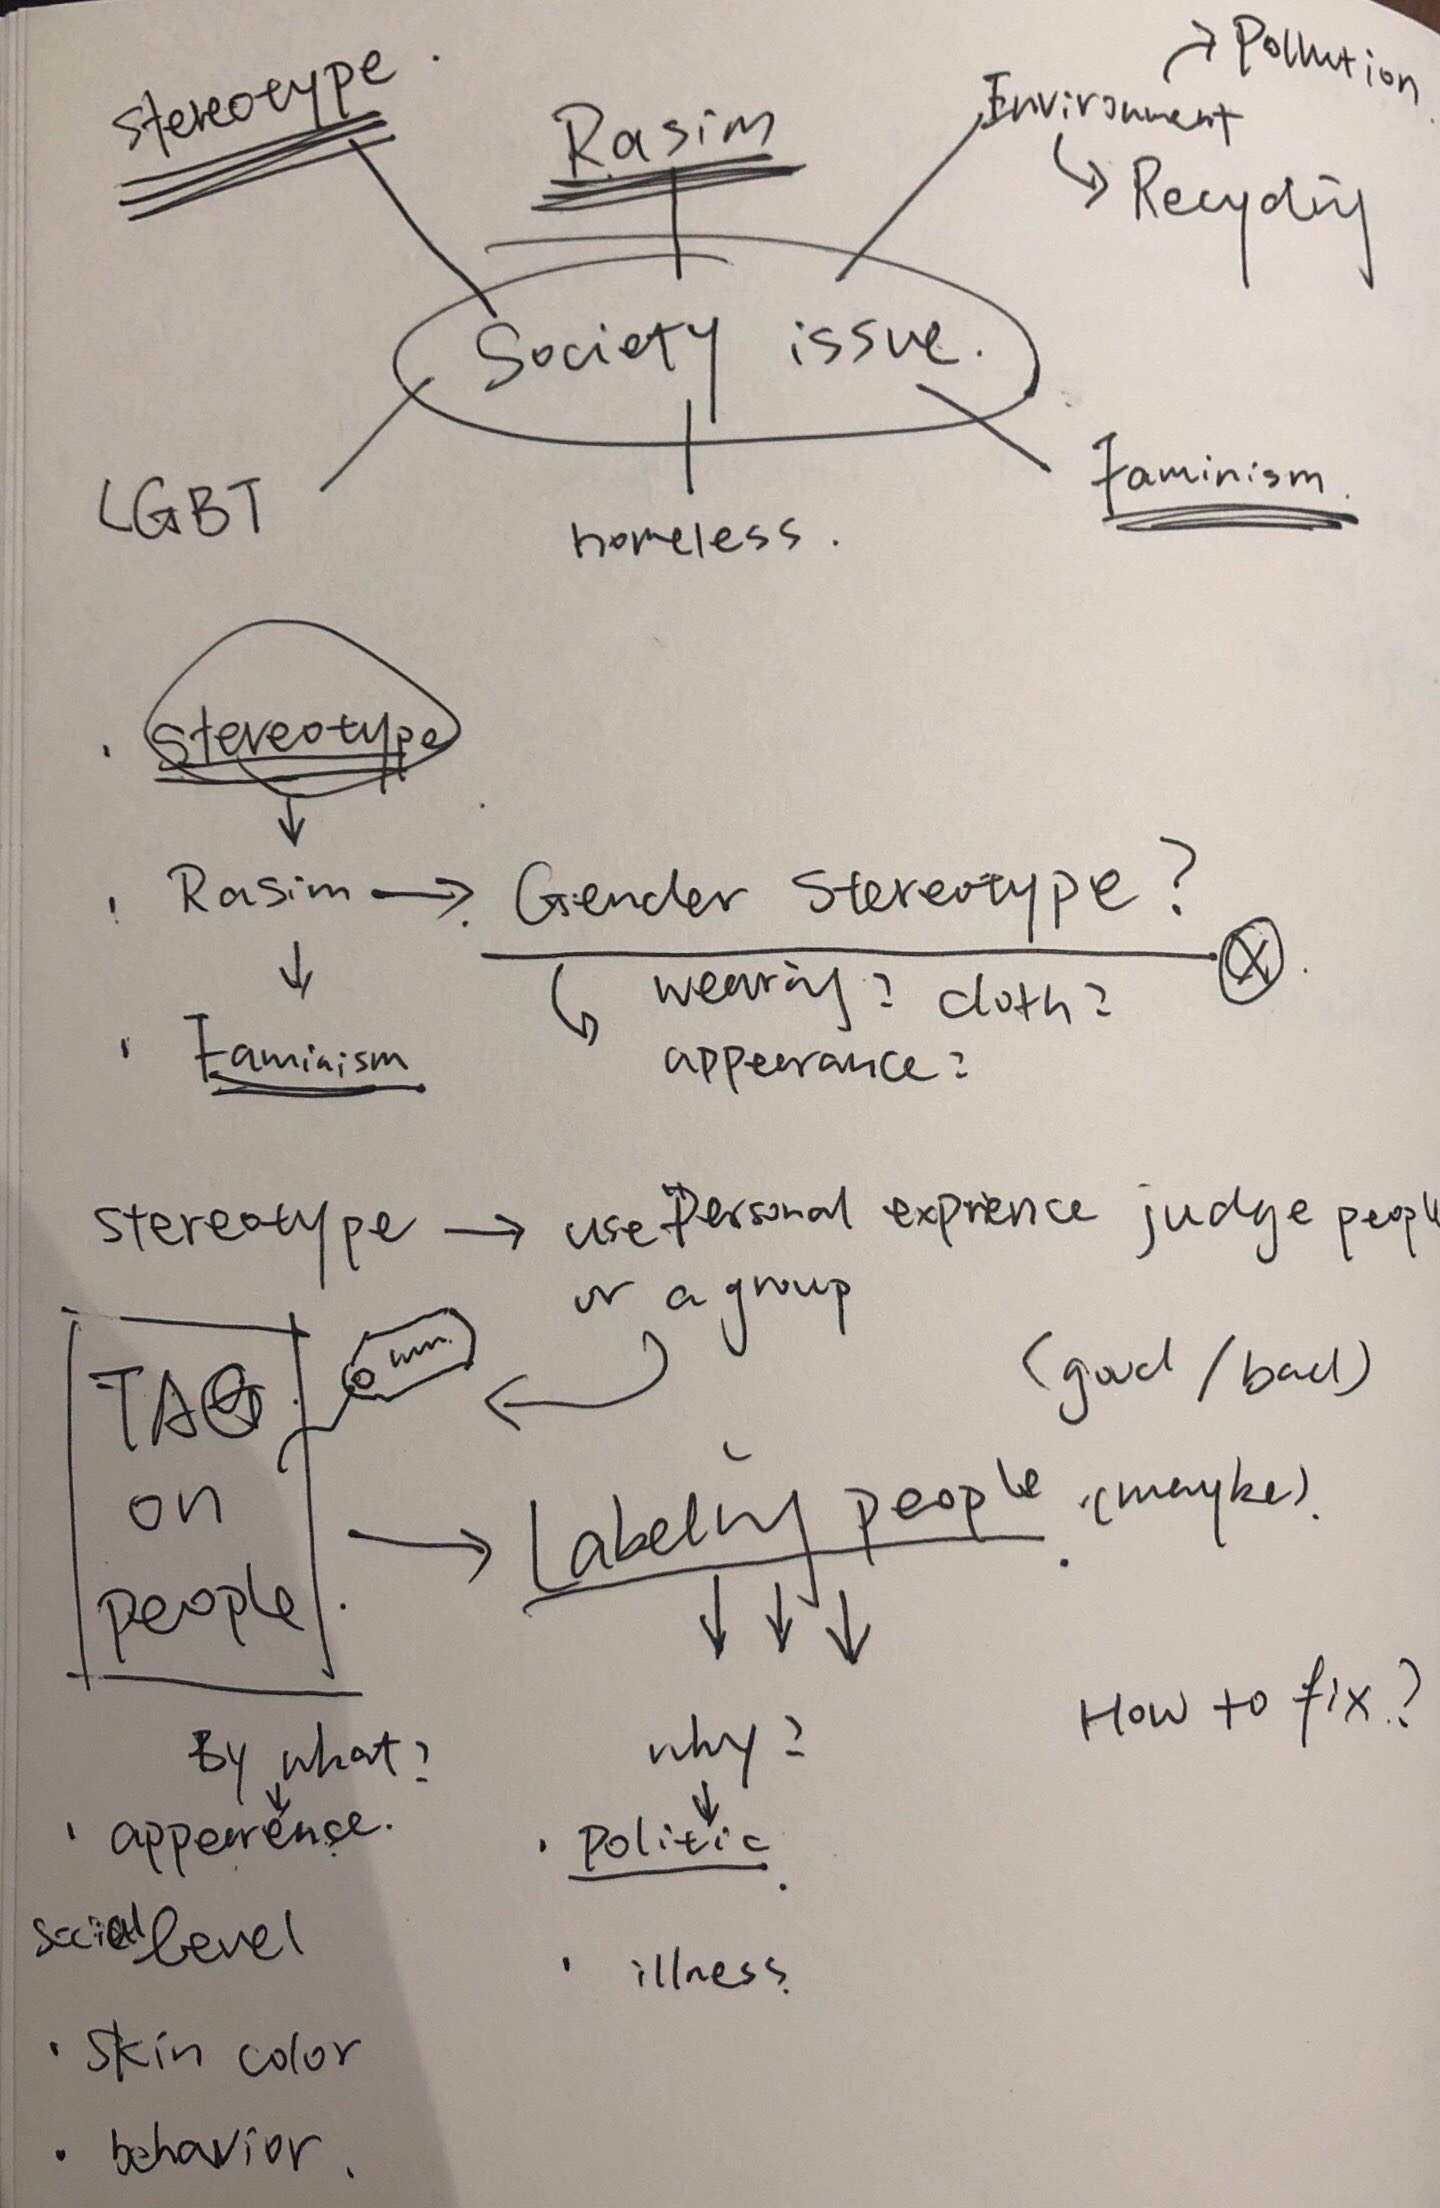 stereotype.
Rasim
Environment
Pollution
Recycling
Society issue.
LGBT
homeless.
Faminism.
stereotype
Rasim → Gender stereotype?
wearing? cloth?
appearance?
Faminism
stereotype → use Personal exprience judge people
or a group
(good / bad)
TAG
on
people
Labeling people. (maybe).
By what?
why?
How to fix?
appearense.
politic
social level
illness
skin color
behavior.